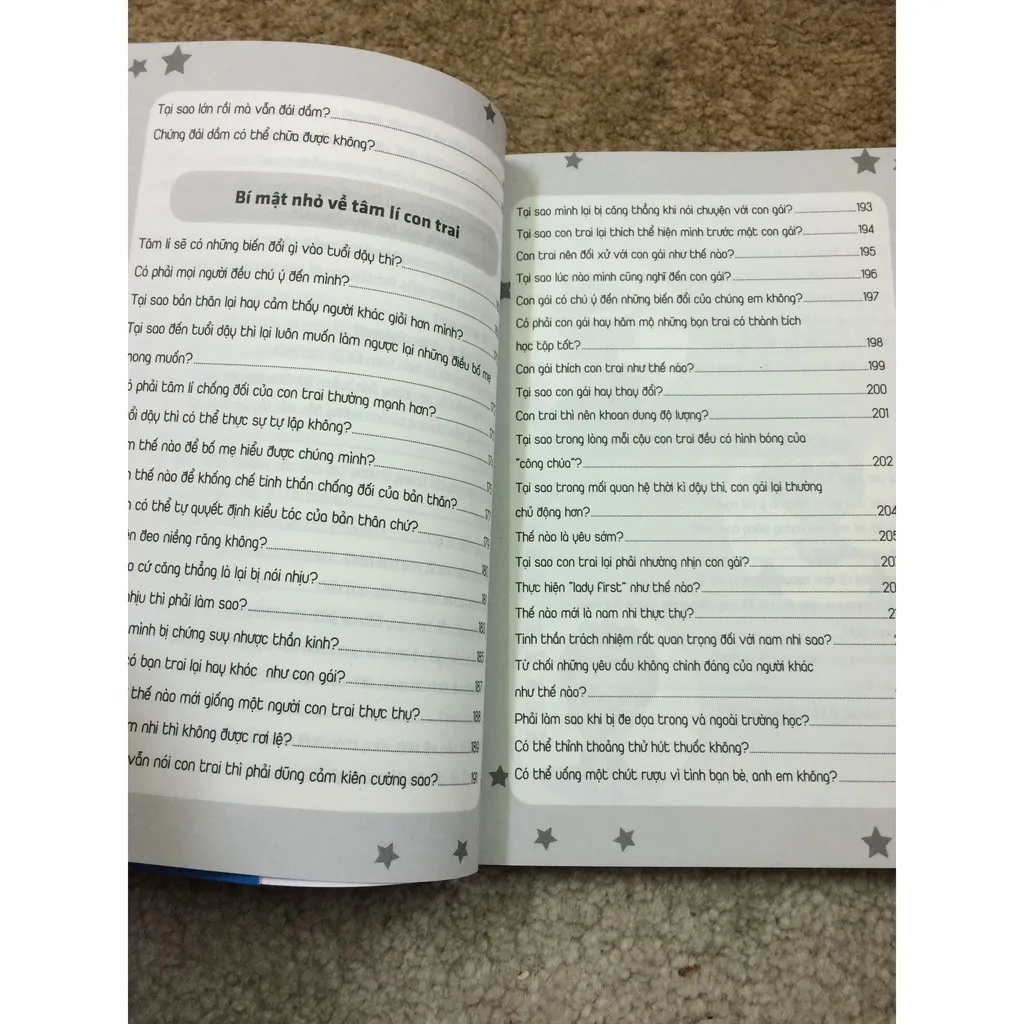 Tại sao lớn rồi mà vẫn đái dầm?
Chứng đái dầm có thể chữa được không?
Bí mật nhỏ về tâm lí con trai
Tâm lí sẽ có những biến đổi gì vào tuổi dậy thì?
Có phải mọi người đều chú ý đến mình?
Tại sao bản thân lại hay cảm thấy người khác giỏi hơn mình?
Tại sao đến tuổi dậy thì lại luôn muốn làm ngược lại những điều bố mẹ
mong muốn?
phải tâm lí chống đối của con trai thường mạnh hơn?
dậy thì có thể thực sự tự lập không?
thế nào để bố mẹ hiểu được chúng mình?
thế nào để khống chế tinh thần chống đối của bản thân?
có thể tự quyết định kiểu tóc của bản thân chứ? 179
đeo niềng răng không? 180
cứ căng thẳng là lại bị nói nhịu? 181
nhịu thì phải làm sao? 183
mình bị chứng suy nhược thần kinh? 185
có bạn trai lại hay khóc như con gái? 187
thế nào mới giống một người con trai thực thụ? 188
nhi thì không được rơi lệ? 189
vẫn nói con trai thì phải dũng cảm kiên cường sao? 191
Tại sao mình lại bị căng thẳng khi nói chuyện với con gái? 193
Tại sao con trai lại thích thể hiện mình trước mặt con gái? 194
Con trai nên đối xử với con gái như thế nào? 195
Tại sao lúc nào mình cũng nghĩ đến con gái? 196
Con gái có chú ý đến những biến đổi của chúng em không? 197
Có phải con gái hay hâm mộ những bạn trai có thành tích
học tập tốt? 198
Con gái thích con trai như thế nào? 199
Tại sao con gái hay thay đổi? 200
Con trai thì nên khoan dung độ lượng? 201
Tại sao trong lòng mỗi cậu con trai đều có hình bóng của
"công chúa"? 202
Tại sao trong mối quan hệ thời kì dậy thì, con gái lại thường
chủ động hơn? 204
Thế nào là yêu sớm? 205
Tại sao con trai lại phải nhường nhịn con gái?
Thực hiện "lady first" như thế nào?
Thế nào mới là nam nhi thực thụ?
Tinh thần trách nhiệm rất quan trọng đối với nam nhi sao?
Từ chối những yêu cầu không chính đáng của người khác
như thế nào?
Phải làm sao khi bị đe dọa trong và ngoài trường học?
Có thể thỉnh thoảng thử hút thuốc không?
Có thể uống một chút rượu vì tình bạn bè, anh em không?